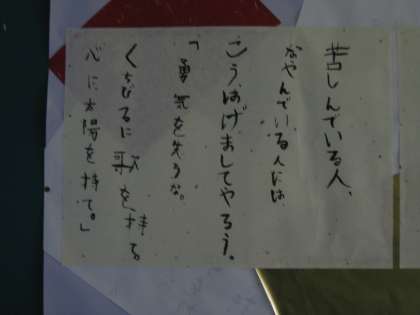 苦しんでいる人、
なやんでいる人には
こう、はげましてやろう。
「勇気を失うな。
くちびるに歌を持て。
心に太陽を持て。」